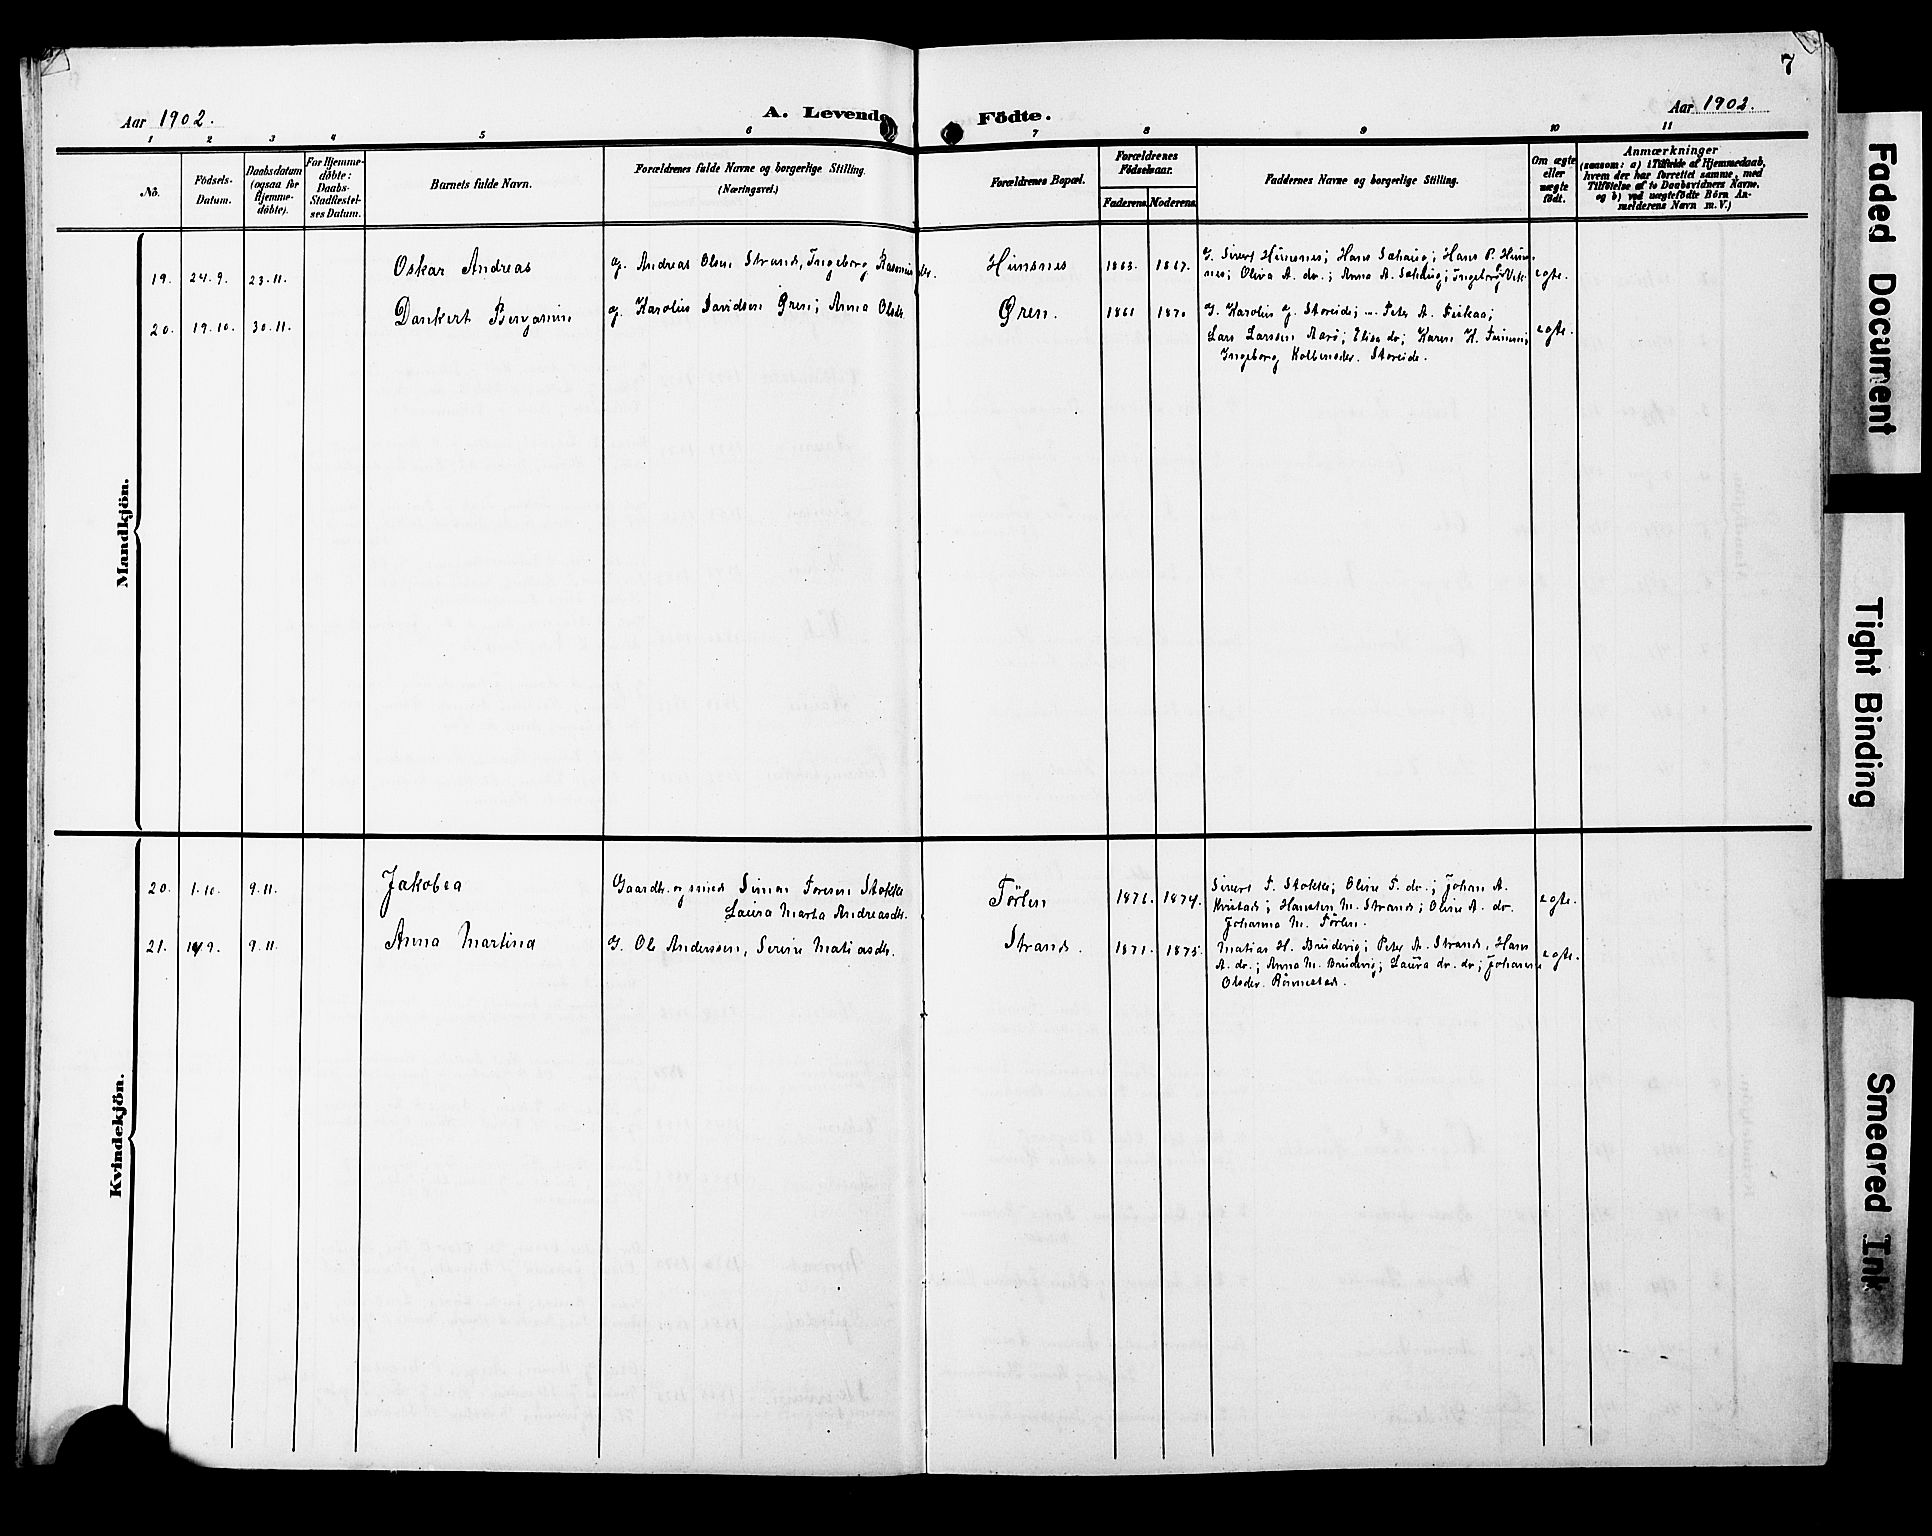 7
Aar 1902.
A. Levende
Födte.
Aar 1902.
1 2 3 4 5 6 7 8 9 10 11
No.
Födsels-
Datum.
Daabsdatum
(ogsaa for
Hjemme-
döbte).
For Hjemme-
döbte:
Daabs-
Stadfæstel-
ses Datum.
Barnets fulde Navn.
Forældrenes fulde Navne og borgerlige Stilling.
(Næringsvei.)
Forældrenes Bopæl.
Forældrenes
Födselsaar.
Faderens. Moderens.
Faddernes Navne og borgerlige Stilling.
Om ægte
eller
uægte
födt.
Anmærkninger
(saasom: a) i Tilfælde af Hjemmedaab,
hvem der har forrettet samme, med
Tilföielse af to Daabsvidners Navne,
og b) ved uægtefödte Börn An-
melderens Navn m. V.)
Mandkjön.
19. 24.9. 23.11. Oskar Andreas g. Andreas Olsen Strand, Ingeborg Rasmusdtr. 1863. 1867.
G. Sivert Hunsnes; Hans Sahaug; Hans P. Huns-
nes; Oliva A. dr.; Anna A. Sahaug; Ingeborg Vik. egte.
20. 19.10. 30.11. Dankert Benjamin g. Karolius Davidsen Øren; Anna Olsdr. Øren. 1861 1870
G. Karolius g. Storeide; Peter A.
Lars Larssen Aarø; Elisa dr; Karen H. egte.
Ingeborg Storeide.
Kvindekjön.
20. 1.10. 9.11. Jakobea Gaardbr. og smed Simon Toresen Stokke
Laura Marta Andreasdtr. Tørlen 1876. 1874.
Sivert T. Stokke; Oline T. dr.; Johan A.
Kristad; Hansten M. Strand; Oline A. dr. egte.
Johanna M. Tørlen.
21. 9. 9.11. Anna Martina G. Ole Anderssen, Serine Matiasdtr. Strand. 1871. 1875.
Matias H. Brudevig; Peter A. Strand, Hans
A. dr.; Anna M. Brudevig; Laura dr. dr; Johanne egte.
Olsdr. Rønnestad.
Faded Document
Tight Binding
Smeared Ink